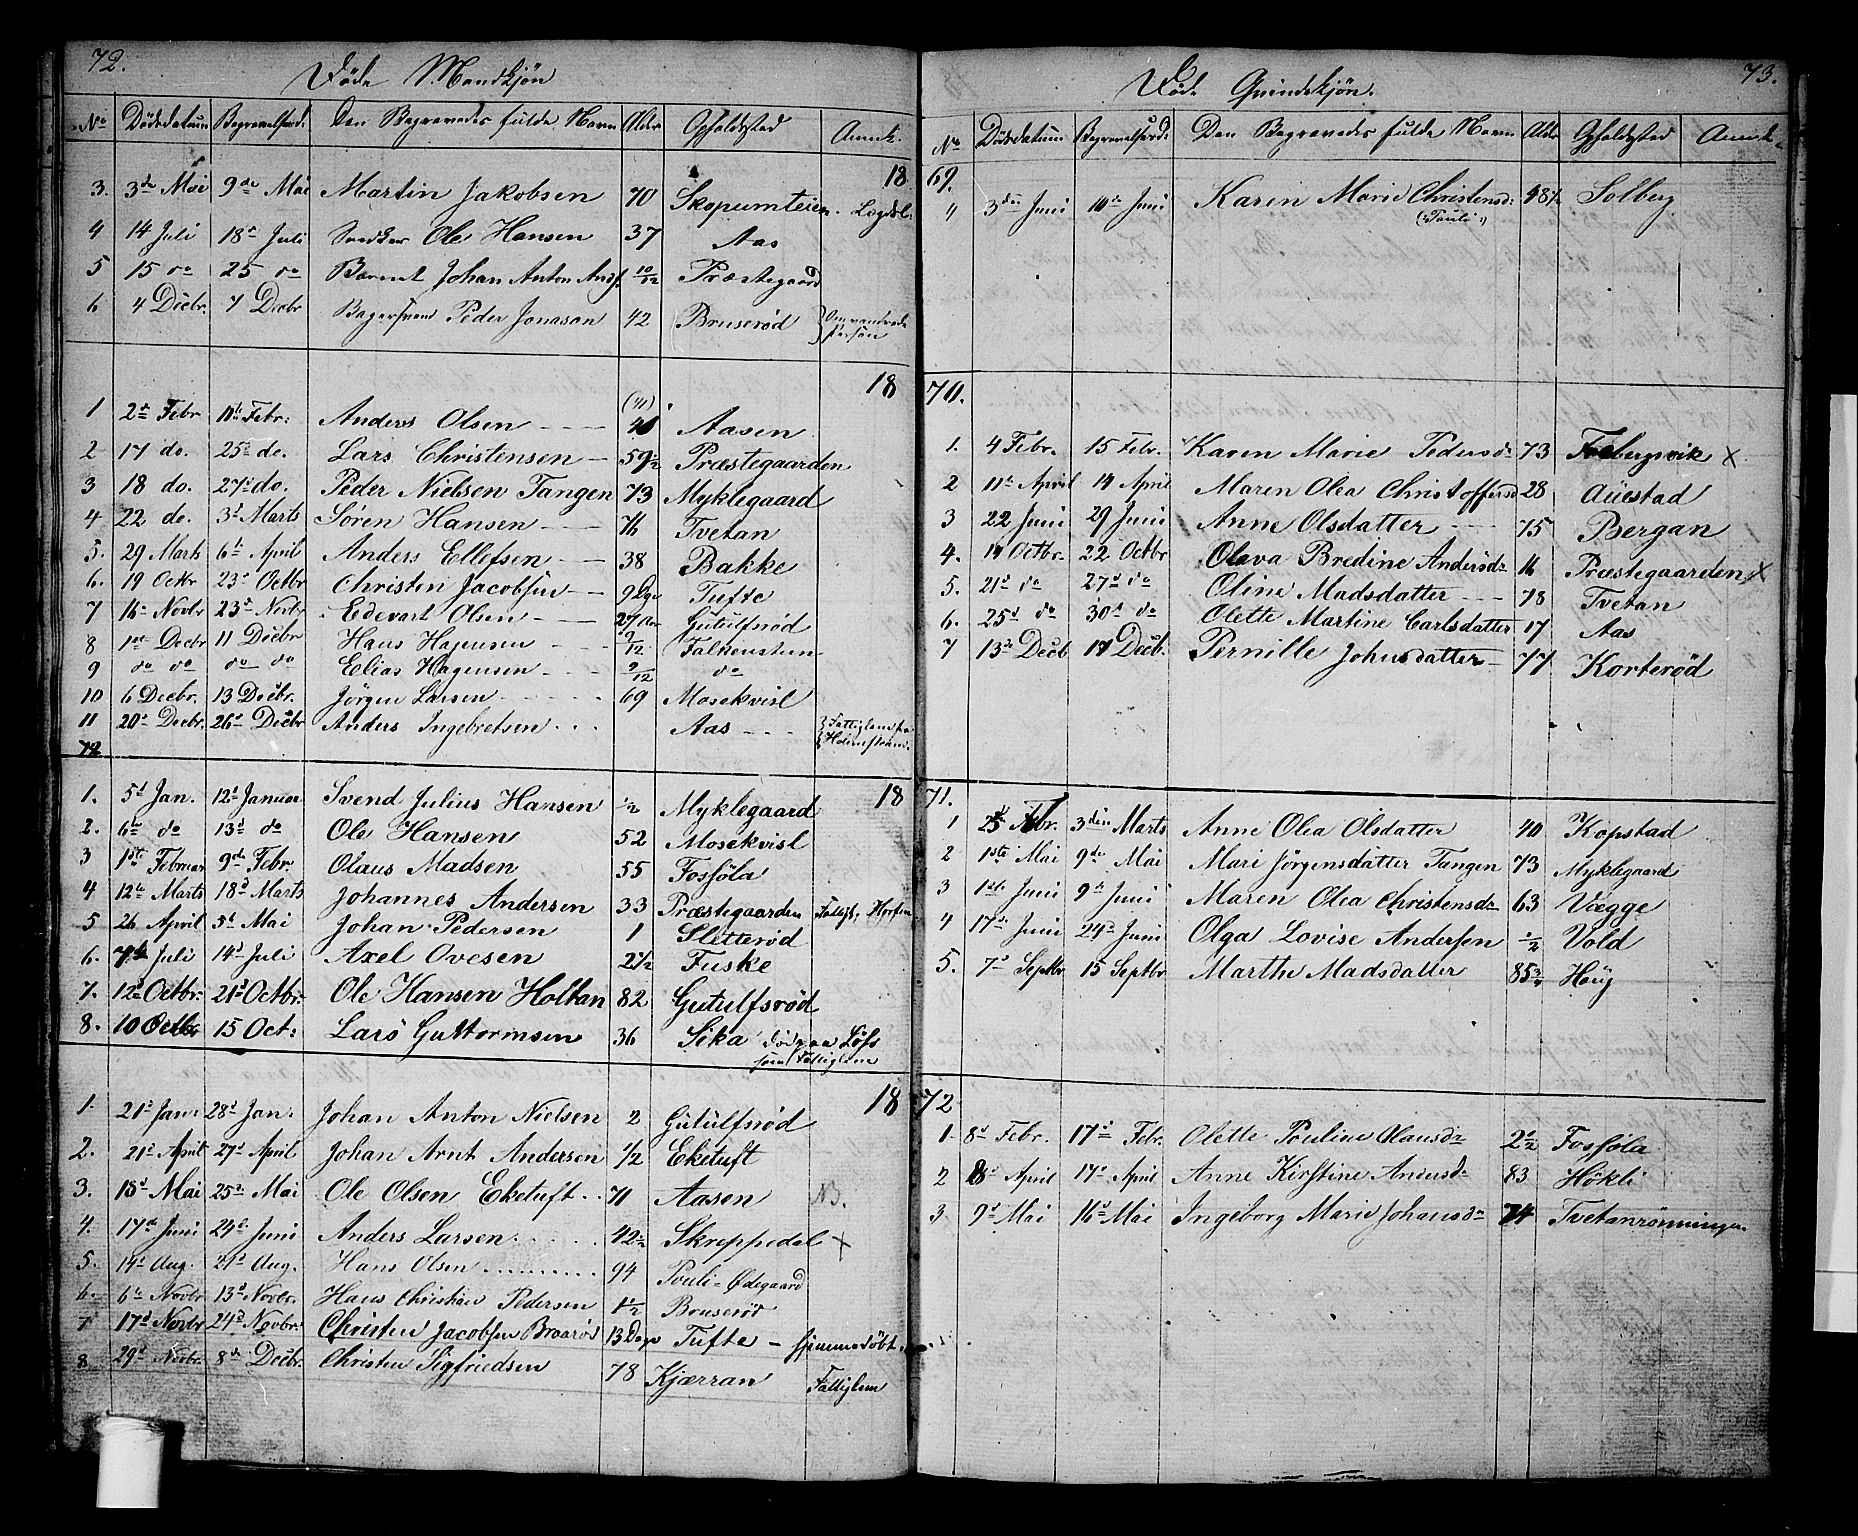 72.
Døde Mandkjøn
No Dødsdatum Begravelsesd: Den Begravedes fulde Navn Alder Opholdssted Anmk.
18
3. 3de Mai 9de Mai Martin Jakobsen 70 Skopumteien Lægdsl.
4 14 Juli 18de Juli Ole Hansen 37 Aas
5 15 do 25 do Barnet Johan Anton And. 10/12 Præstegaard
6 4 Decbr. 7 Decbr Bagersvend Peder Jonason 42 Bruserød Omvandrende Person
18
1 2de Febr 10de Febr: Anders Olsen (41) 41 Aasen
2 17 do. 25de do. Lars Christensen 59 1/2 Præstegaarden
3 18 do. 27de do. Peder Nielsen Tangen 73 Myklegaard
4 22 do. 3d Marts Søren Hansen 76 Tvetan
5. 29 Marts 6te April Anders Ellefsen 38 Bakke
6. 19 Octbr 23de Octbr Christen Jacobsen 9 Dge Tufte
7 16de Novbr 23de Novbr Edevart Olsen 27 Aar Gutulfsrød
8 1ste Decbr 11 Decbr Hans Hagensen 9/12 Falkensten
9 do do do do Elias Hagensen 9/12 do
10 6 Decbr. 13 Decbr. Jørgen Larsen 69 Mosekvisl
11 20de Decbr. 26de Decbr Anders Ingebretsen Aas Fattiglem fra Holmestrand
12
18
1. 5d Jan. 12d Januar Svend Julius Hansen 1/2 Myklegaard
2. 6te do 13d do Ole Hansen 52 Mosekvisl
3 1ste Februar 9de Febr. Olaus Madsen 55 Fosføla
4 12te Marts 18d Marts Johannes Andersen 33 Præstegaarden Fattigl. Horten
5 26 April 5d Mai Johan Pedersen 1 Sletterød
6. 7de Juli 14d Juli Axel Ovesen 2 1/2 Fuske
7. 12d Octbr: 21d Octbr: Ole Hansen Holtan 82 Gutulfsrød
8. 10 Octbr 15 Oct: Lars Guttormsen 36 Sika død paa Løfs
som Fattiglem
18
1. 21d Jan: 28d Jan. Johan Anton Nielsen 2 Gutulfsrød
2. 21de April 27d April Johan Arnt Andersen 1/2 Eketuft
3. 18d Mai 25de Mai Ole Olsen Eketuft 71 Aasen NB.
4. 17de Juni 24d Juni Anders Larsen 42 1/2 Skreppedal x
5. 14d Aug. 21d Aug. Hans Olsen 94 Pouli-Ødegaard
6. 6te Novbr 13d Novbr. Hans Christian Pedersen 1 1/2 Bruserød
7 17d Novbr 24d Novbr: Christen Jacobsen Braarød 13 Dage Tufte - hjemmedøbt.
8 29d Novbr. 8de Decbr. Christen Sigfriedsen 78 Kjærran Fattiglem
73.
Døde Qvindekjøn.
No Dødsdatum Begravelsesd: Den Begravedes fulde Navn Alder Opholdssted Anmk.
69.
" 3die Juni 10de Juni Karen Marie Christensd: 48 1/2 Solberg
(:Pauli:)
70.
1. 4 Febr. 15 Febr. Karen Marie Pedersd 73 Frebergsvik x
2 11te April 17 April Maren Olea Christoffersd 28 Auestad
3 22 Juni 29 Juni Anne Olsdatter 75 Bergan
4. 17 Octbr. 22 Octbr Olava Bredine Andersd 16 Præstegaarden x
5. 21d do 27d do Oline Madsdatter 78 Tvetan
6. 25d do 30d do Olette Martine Carlsdatter 17 Aas
7 13de Decb 17 Decb. Pernille Johnsdatter 77 Korterød
71.
1 25 Febr. 3die Marts Anne Olea Olsdatter 40 Kopstad
2 1ste Mai 9de Mai Mari Jørgensdatter Tangen 73 Myklegaard
3 1ste Juni 9de Juni Maren Olea Christensd 63 Vægge
4 17de Juni 24de Juni Olga Lovise Andersen 1/2 Vold
5. 7d Septbr 15 Septbr Marthe Madsdatter 85 3/4 Houg
72
1. 8d Febr. 17d Febr. Olette Pouline Olausd 2 1/2 Fosføla
2 8d April 17d April Anne Kirstine Andersd 83 Høkli
3 9d Mai 16d Mai Ingeborg Marie Johansd 74 Tvetanrønningen